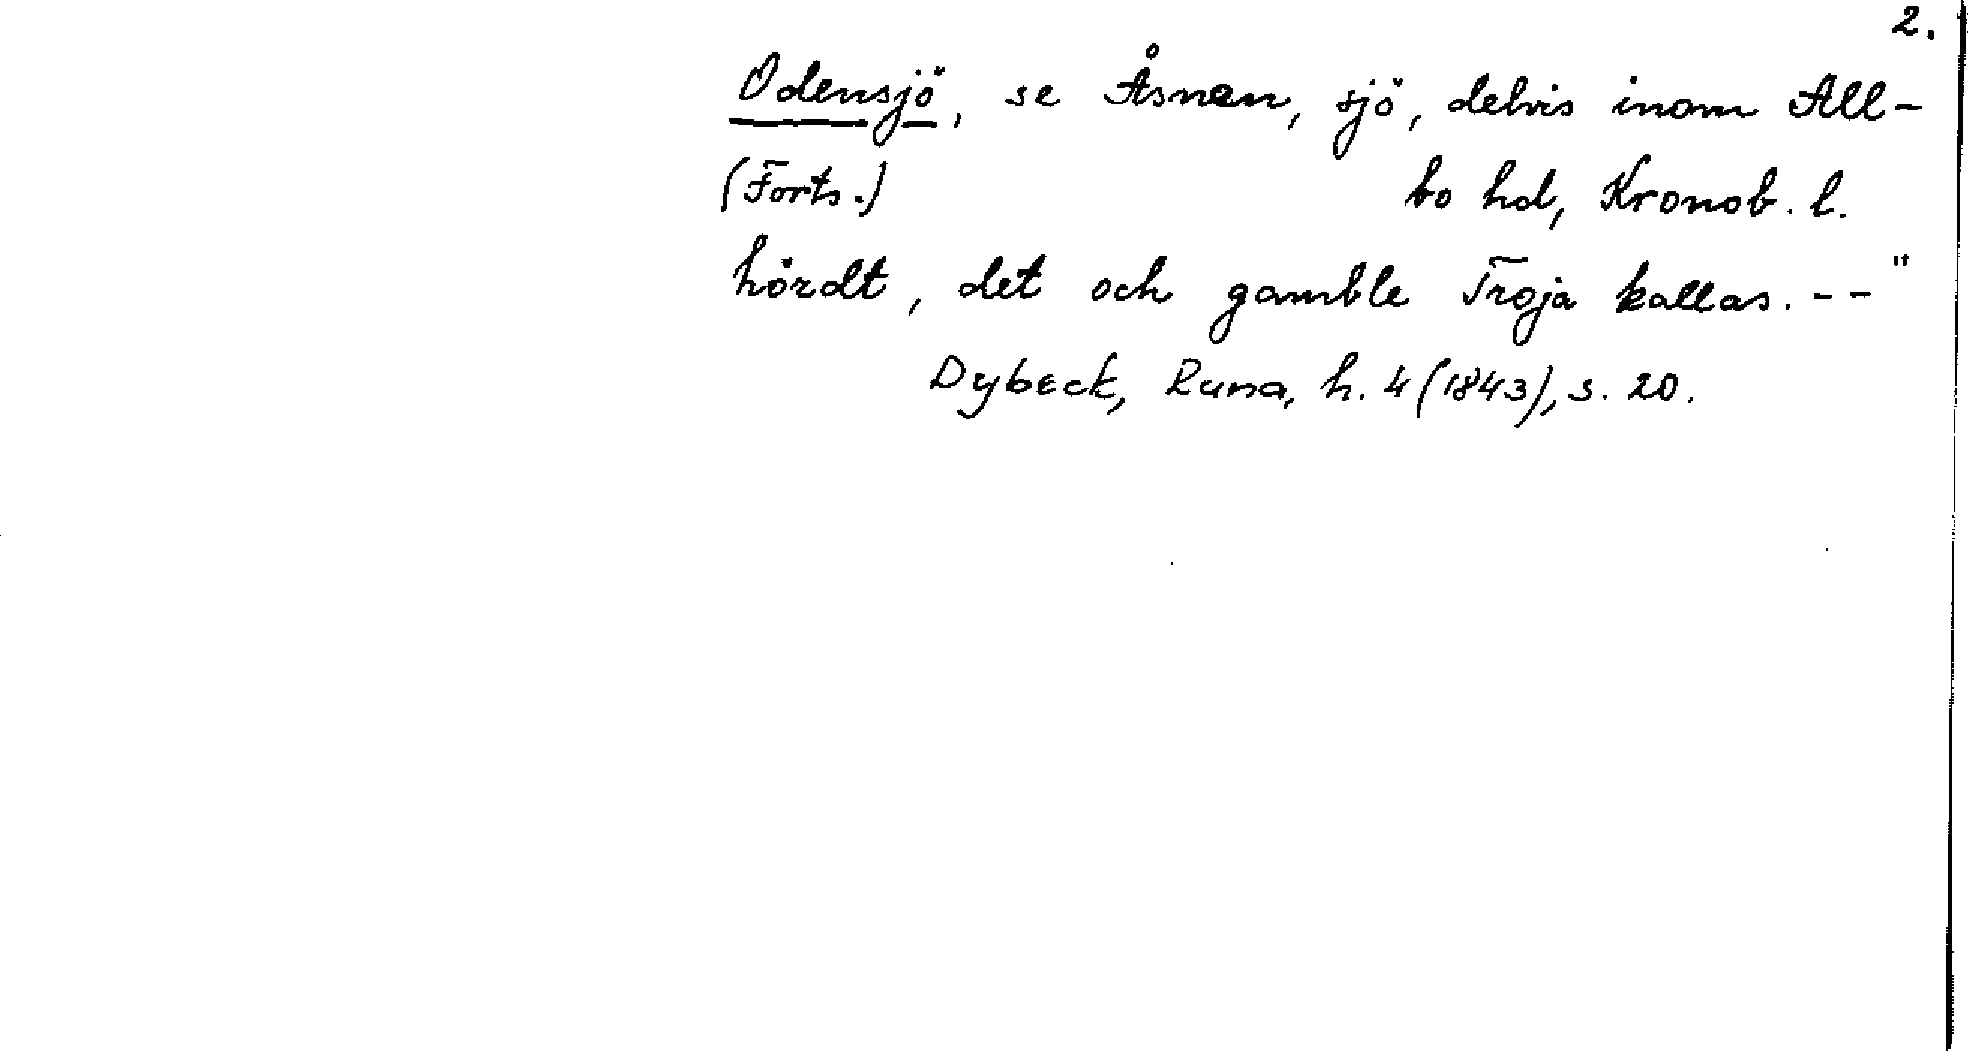 2.
Odensjö, se Åsnen, sjö, delvis inom All-
(Forts.) bo hd, Kronob. l.
hördt, det och gamble Troja kallas. - - "
Dybeck, Runa, h. 4 (1843), s. 20.